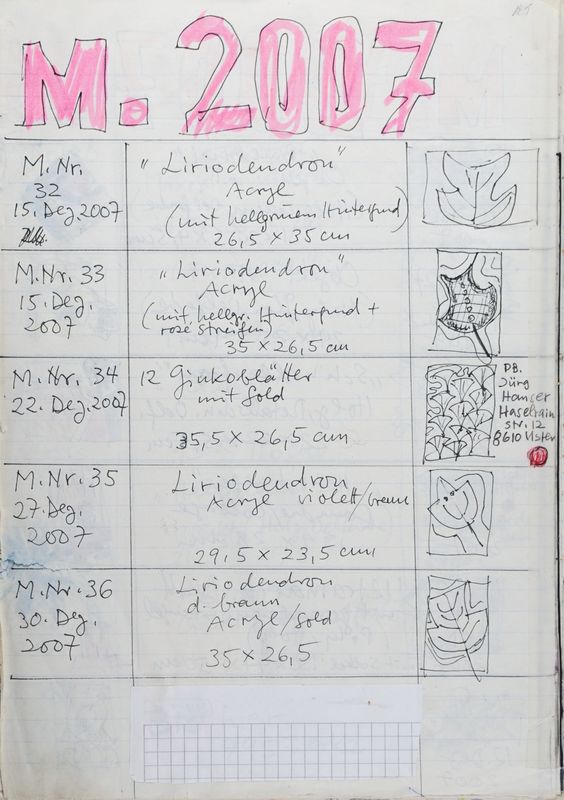 M. 2007
M. Nr.
32
15. Dez. 2007
"Liriodendron"
Acryl
(mit hellgrünem Hintergrund)
26,5 x 35 cm
M. Nr. 33
15. Dez.
2007
"Liriodendron"
Acryl
(mit hellgr. Hintergrund +
rosé streifen)
35 x 26,5 cm
M. Nr. 34
22. Dez. 2007
12 Ginkoblätter
mit Gold
35,5 x 26,5 cm
PB.
Jürg
Hanser
Haselrain
str. 12
8610 Uster
M. Nr. 35
27. Dez.
2007
Liriodendron
Acryl violett/braun
29,5 x 23,5 cm
M. Nr. 36
30. Dez.
2007
Liriodendron
d. braun
Acryl/Gold
35 x 26,5